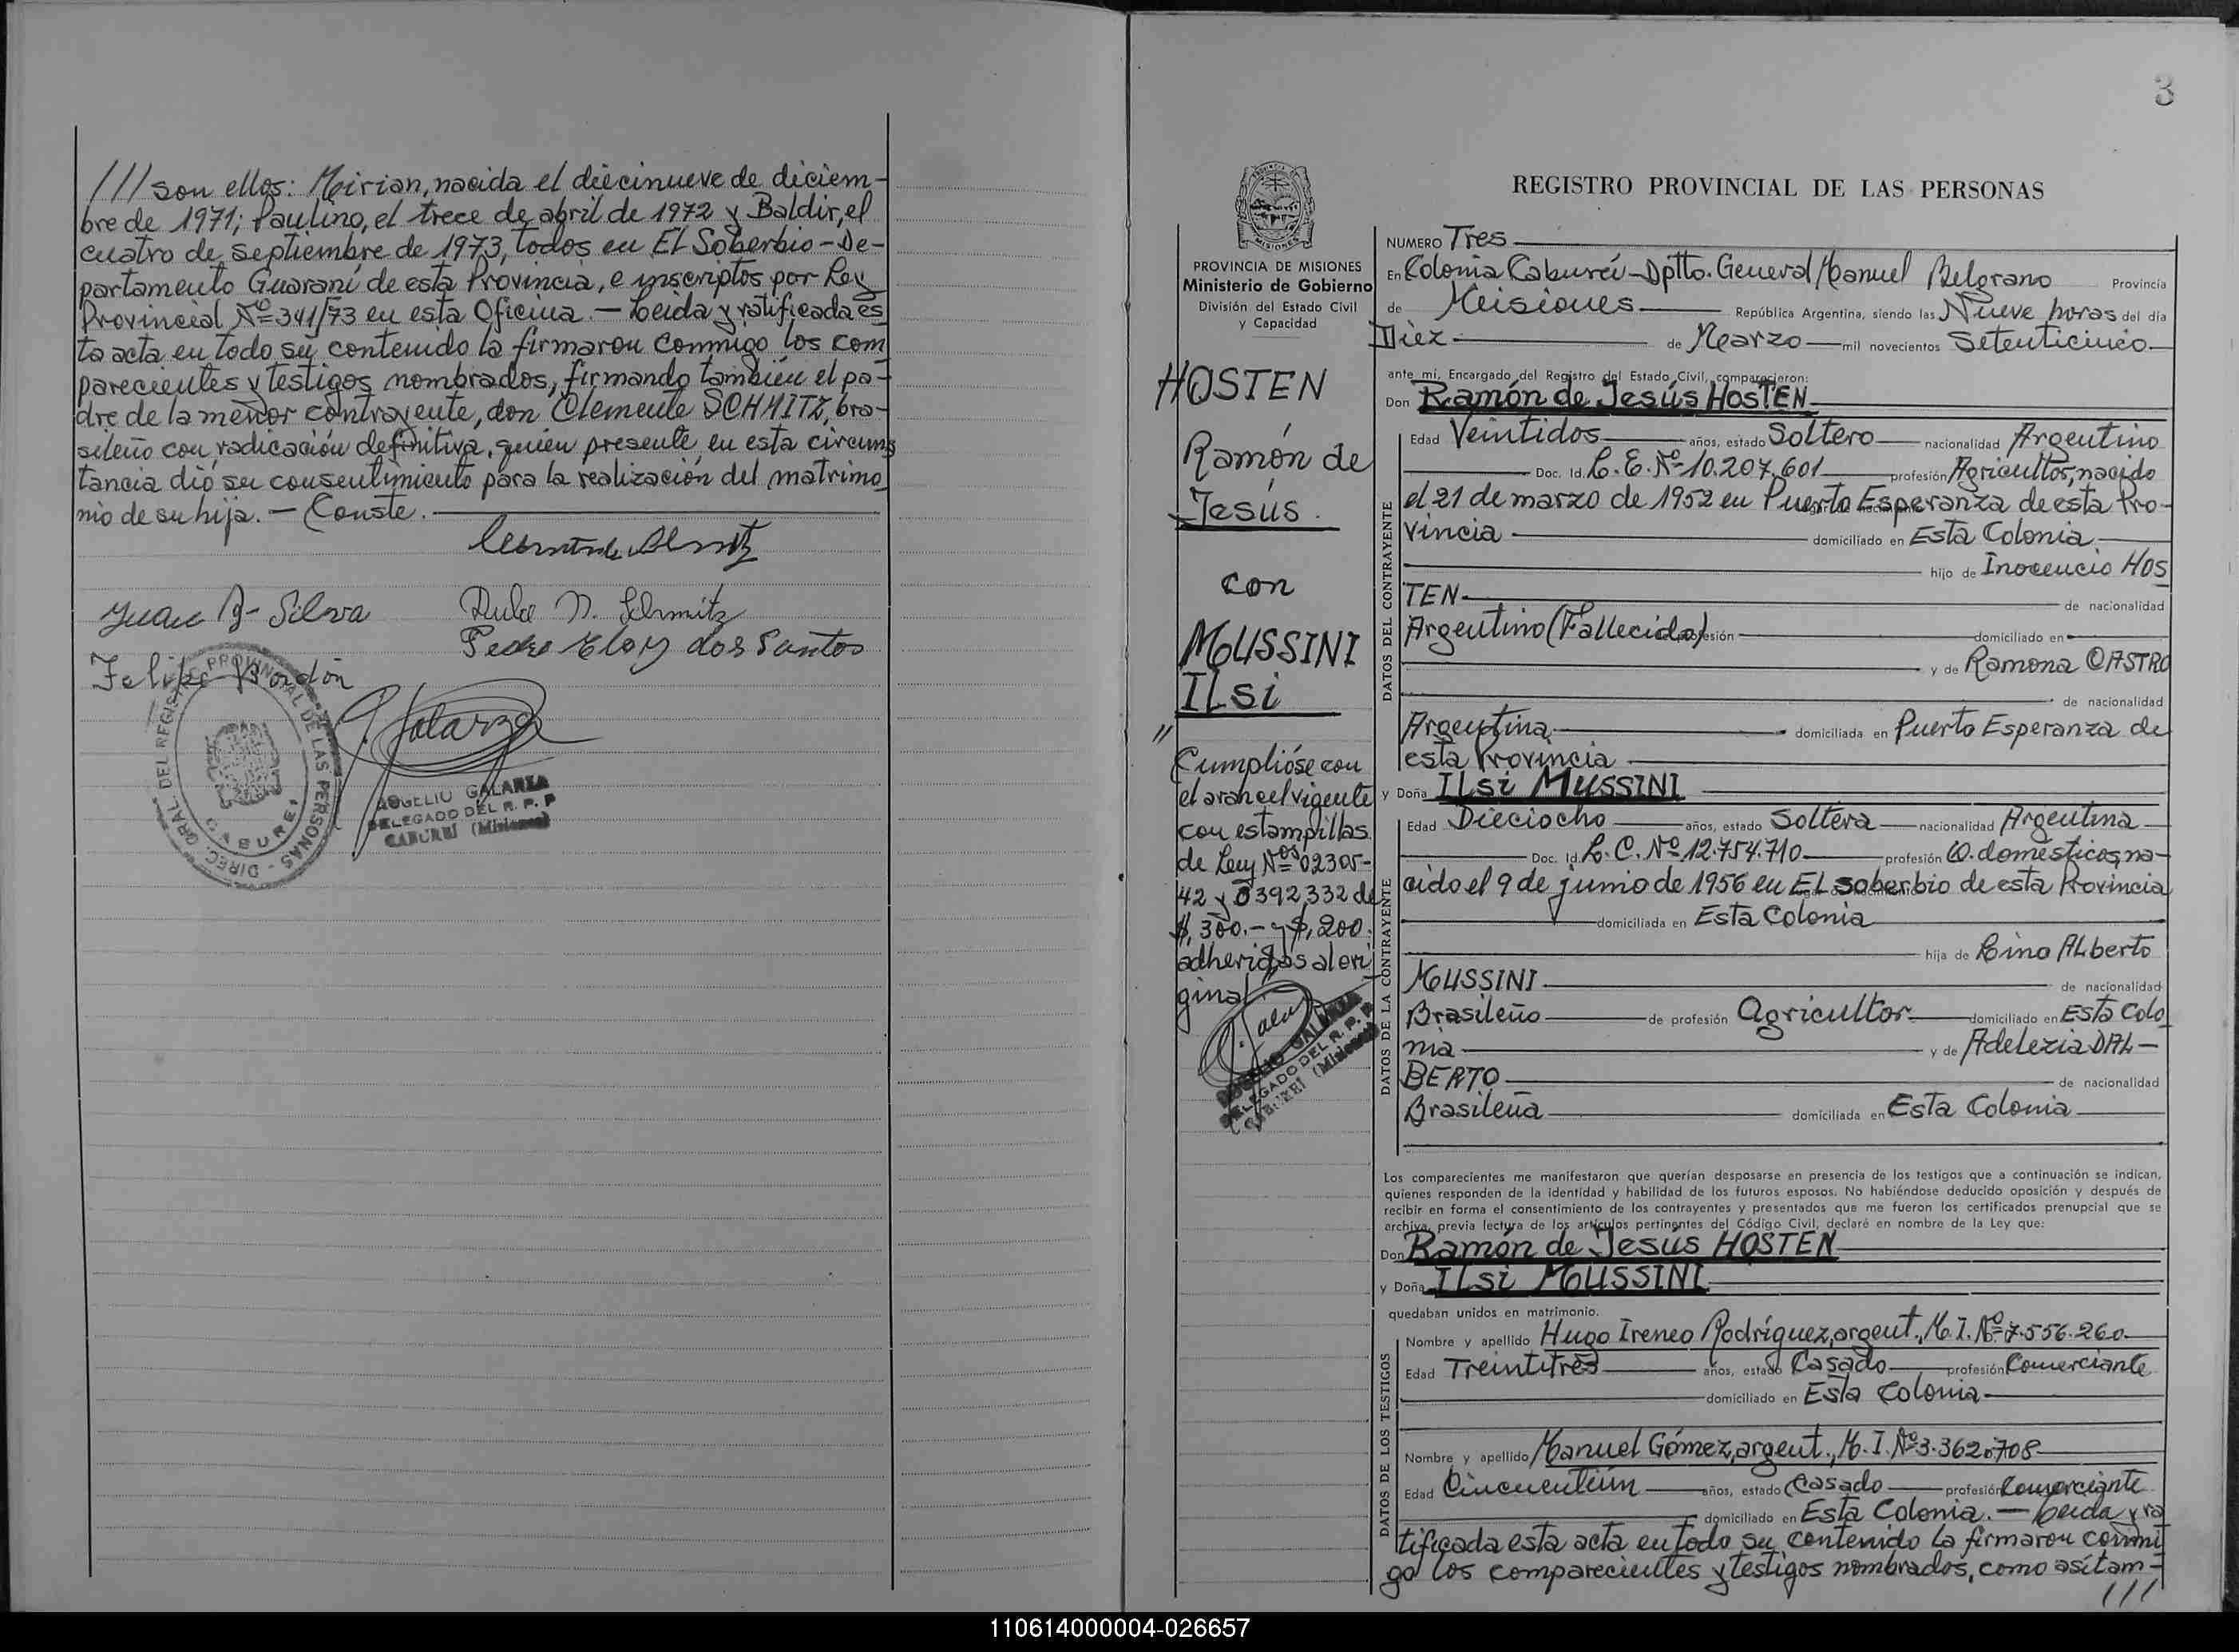 /// son ellos: Mirian, nacida el diecinueve de diciem-
bre de 1971; Paulino, el trece de abril de 1972 y Baldir, el
cuatro de septiembre de 1973, todos en El Soberbio - De-
partamento Guaraní de esta Provincia, e inscriptos por Ley
Provincial Nº 341/73 en esta Oficina. — Leida y ratificada es
ta acta en todo su contenido la firmaron conmigo los com
parecientes y testigos nombrados, firmando también el pa-
dre de la menor contrayente, don Clemente SCHMITZ, bra-
sileño con radicación definitiva, quien presente en esta circuns
tancia dió su consentimiento para la realización del matrimo
nio de su hija. — Conste.
Juan B. Silva
Dulce N. Schmitz
Pedro Eloy dos Santos
Felipe Bordón
DIREC. GRAL. DEL REGISTRO PROVINCIAL DE LAS PERSONAS - CABUREI
G. Galarza
ROGELIO GALARZA
DELEGADO DEL R. P. P
CABUREI (Misiones)
3
PROVINCIA DE MISIONES
Ministerio de Gobierno
División del Estado Civil
y Capacidad
HOSTEN
Ramón de
Jesús.
con
MUSSINI
ILsi
"
Cumplióse con
el arancel vigente
con estampillas
de Ley Nos 02305-
42 y 0392,332 de
$, 300.- y $, 200.
adheridas al ori
ginal
ROGELIO GALARZA
DELEGADO DEL R. P. P
CABUREI (Misiones)
REGISTRO PROVINCIAL DE LAS PERSONAS
NUMERO Tres
En Colonia Caburéi - Dptto. General Manuel Belgrano Provincia
de Misiones República Argentina, siendo las Nueve horas del día
Diez de Marzo mil novecientos Setenticinco
ante mí, Encargado del Registro del Estado Civil, comparecieron:
Don Ramón de Jesús HOSTEN
Edad Veintidos años, estado Soltero nacionalidad Argentino
Doc. Id. L. E. Nº 10.207.601 profesión Agricultor, nacido
el 21 de marzo de 1952 en Puerto Esperanza de esta Pro-
vincia domiciliado en Esta Colonia
hijo de Inocencio HOS
TEN de nacionalidad
Argentino (Fallecido) profesión domiciliado en
y de Ramona CASTRO
de nacionalidad
Argentina domiciliada en Puerto Esperanza de
esta Provincia
y Doña ILsi MUSSINI
Edad Dieciocho años, estado Soltera nacionalidad Argentina
Doc. Id. L. C. Nº 12.754.710 profesión Q. domésticos, na-
cido el 9 de junio de 1956 en EL soberbio de esta Provincia
domiciliada en Esta Colonia
hija de Lino ALberto
MUSSINI de nacionalidad
Brasileño de profesión Agricultor domiciliado en Esta Colo
nia y de Adelezia DAL-
BERTO de nacionalidad
Brasileña domiciliada en Esta Colonia
Los comparecientes me manifestaron que querían desposarse en presencia de los testigos que a continuación se indican,
quienes responden de la identidad y habilidad de los futuros esposos. No habiéndose deducido oposición y después de
recibir en forma el consentimiento de los contrayentes y presentados que me fueron los certificados prenupcial que se
archiva, previa lectura de los artículos pertinentes del Código Civil, declaré en nombre de la Ley que:
Don Ramón de Jesús HOSTEN
y Doña ILsi MUSSINI
quedaban unidos en matrimonio.
Nombre y apellido Hugo Ireneo Rodríguez, argent., M. I. Nº 7.556.260
Edad Treintitres años, estado Casado profesión Comerciante
domiciliado en Esta Colonia
Nombre y apellido Manuel Gómez, argent., M. I. Nº 3.362.708
Edad Cincuentiún años, estado Casado profesión Comerciante
domiciliado en Esta Colonia. — Leida y ra
tificada esta acta en todo su contenido la firmaron conmi
go los comparecientes y testigos nombrados, como asítam-
///
DATOS DEL CONTRAYENTE
DATOS DE LA CONTRAYENTE
DATOS DE LOS TESTIGOS
110614000004-026657